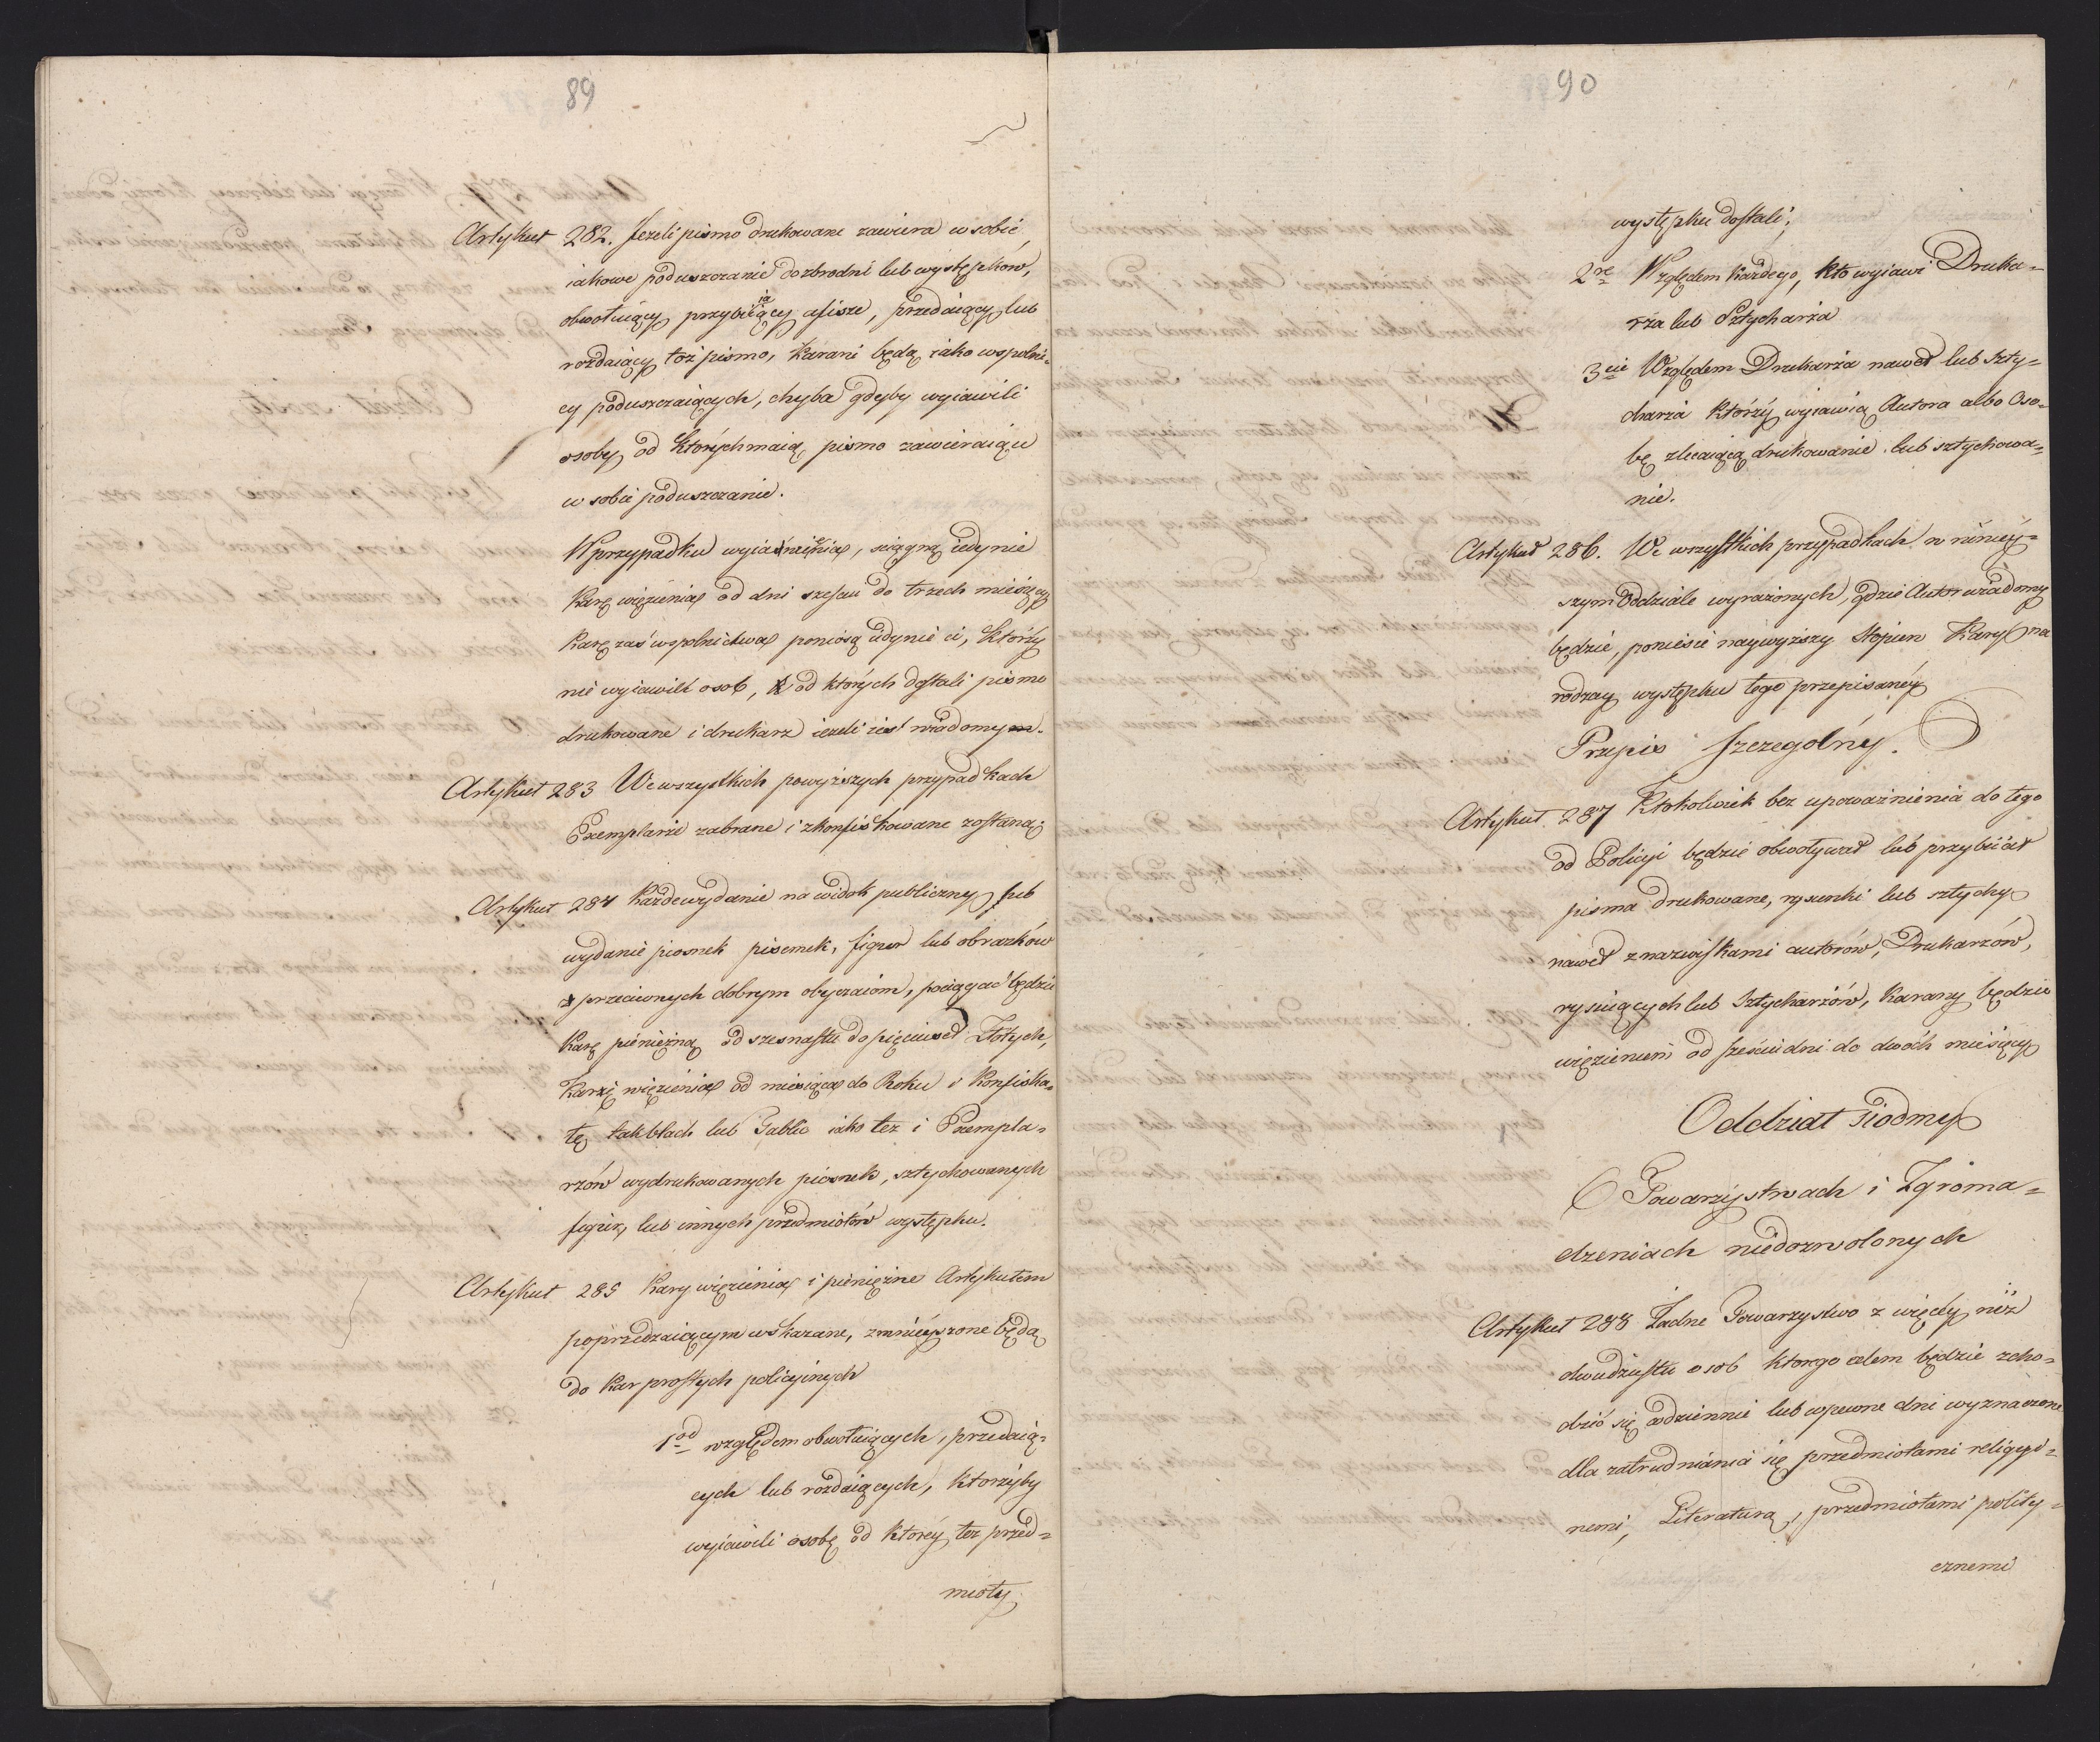 89
Artykuł 282. Jeżeli pismo drukowane zawiera w sobie
iakowe poduszczanie do zbrodni lub występkow,
obwołuiący przybiiaiący afisze, przedaiący lub
rozdaiący toż pismo, karani będą iako wspolni=
cy poduszczaiących, chyba gdyby wyiawili
osoby od ktorych maią pismo zawieraiące
w sobie poduszczanie.
W przypadku wyiawienia, sciągną iedynie
karę więzienia od dni szesciu do trzech miesięcy
karę zaś wspolnictwa poniosą iedynie ci, którzy
nie wyiawili osob, od ktorych dostali pismo
drukowane i drukarz ieżeli iest wiadomy.
Artykuł 283 We wszystkich powyższych przypadkach
Exemplarze zabrane i zkonfiskowane zostaną.
Artykuł 284 Każde wydanie na widok publiczny lub
wydanie piosnek pisemek, figur lub obrazków
przeciwnych dobrym obyczaiom, pociągać będzie
karę pieniężną od szesnastu do pięciuset Złotych,
karę więzienia od miesiąca do Roku i Konfiska=
tę tak blach lub Tablic iako tez i Exempla=
rzów wydrukowanych piosnek, sztychowanych
figur, lub innych przedmiotów występku.
Artykuł 285 Kary więzienia i pieniężne Artykułem
poprzedzaiącym wskazane, zmnieyszone będą
do kar prostych policyinych
1od względem obwołuiących, przedaią=
cych lub rozdaiących, ktorzyby
wyiawili osobę od ktorey tez przed=
mioty
90
występku dostali;
2re Względem każdego, kto wyiawi Druka=
rza lub Sztycharza
3cie Względem Drukarza nawet lub Szty=
charza którzy wyiawią Autora albo Oso=
bę zlecaiącą drukowanie lub sztychowa=
nie.
Artykuł 286. We wszystkich przypadkach w ninieÿ=
szym Oddziale wyrażonych, gdzie Autor wiadomy
będzie, poniesie naywyższy stopien Kary na
rodzay występku tego przepisaney
Przepis szczegolny.
Artykuł 287 Ktokolwiek bez upoważnienia do tego
od Policyi będzie obwoływał lub przybiiał
pisma drukowane, rysunki lub sztychy
nawet z nazwiskami autorów, Drukarzów,
rysuiących lub Sztycharzów, karany będzie
więzieniem od sześciu dni do dwóch miesięcy
Oddział siodmy
O Towarzystwach i Zgroma=
dzeniach niedozwolonych
Artykuł 288 Żadne Towarzystwo z więcey niż
dwudziestu osob ktorego celem będzie zcho=
dzić się codziennie lub w pewne dni wyznaczone
dla zatrudniania się przedmiotami religÿi=
nemi, Literaturą, przedmiotami polity=
cznemi